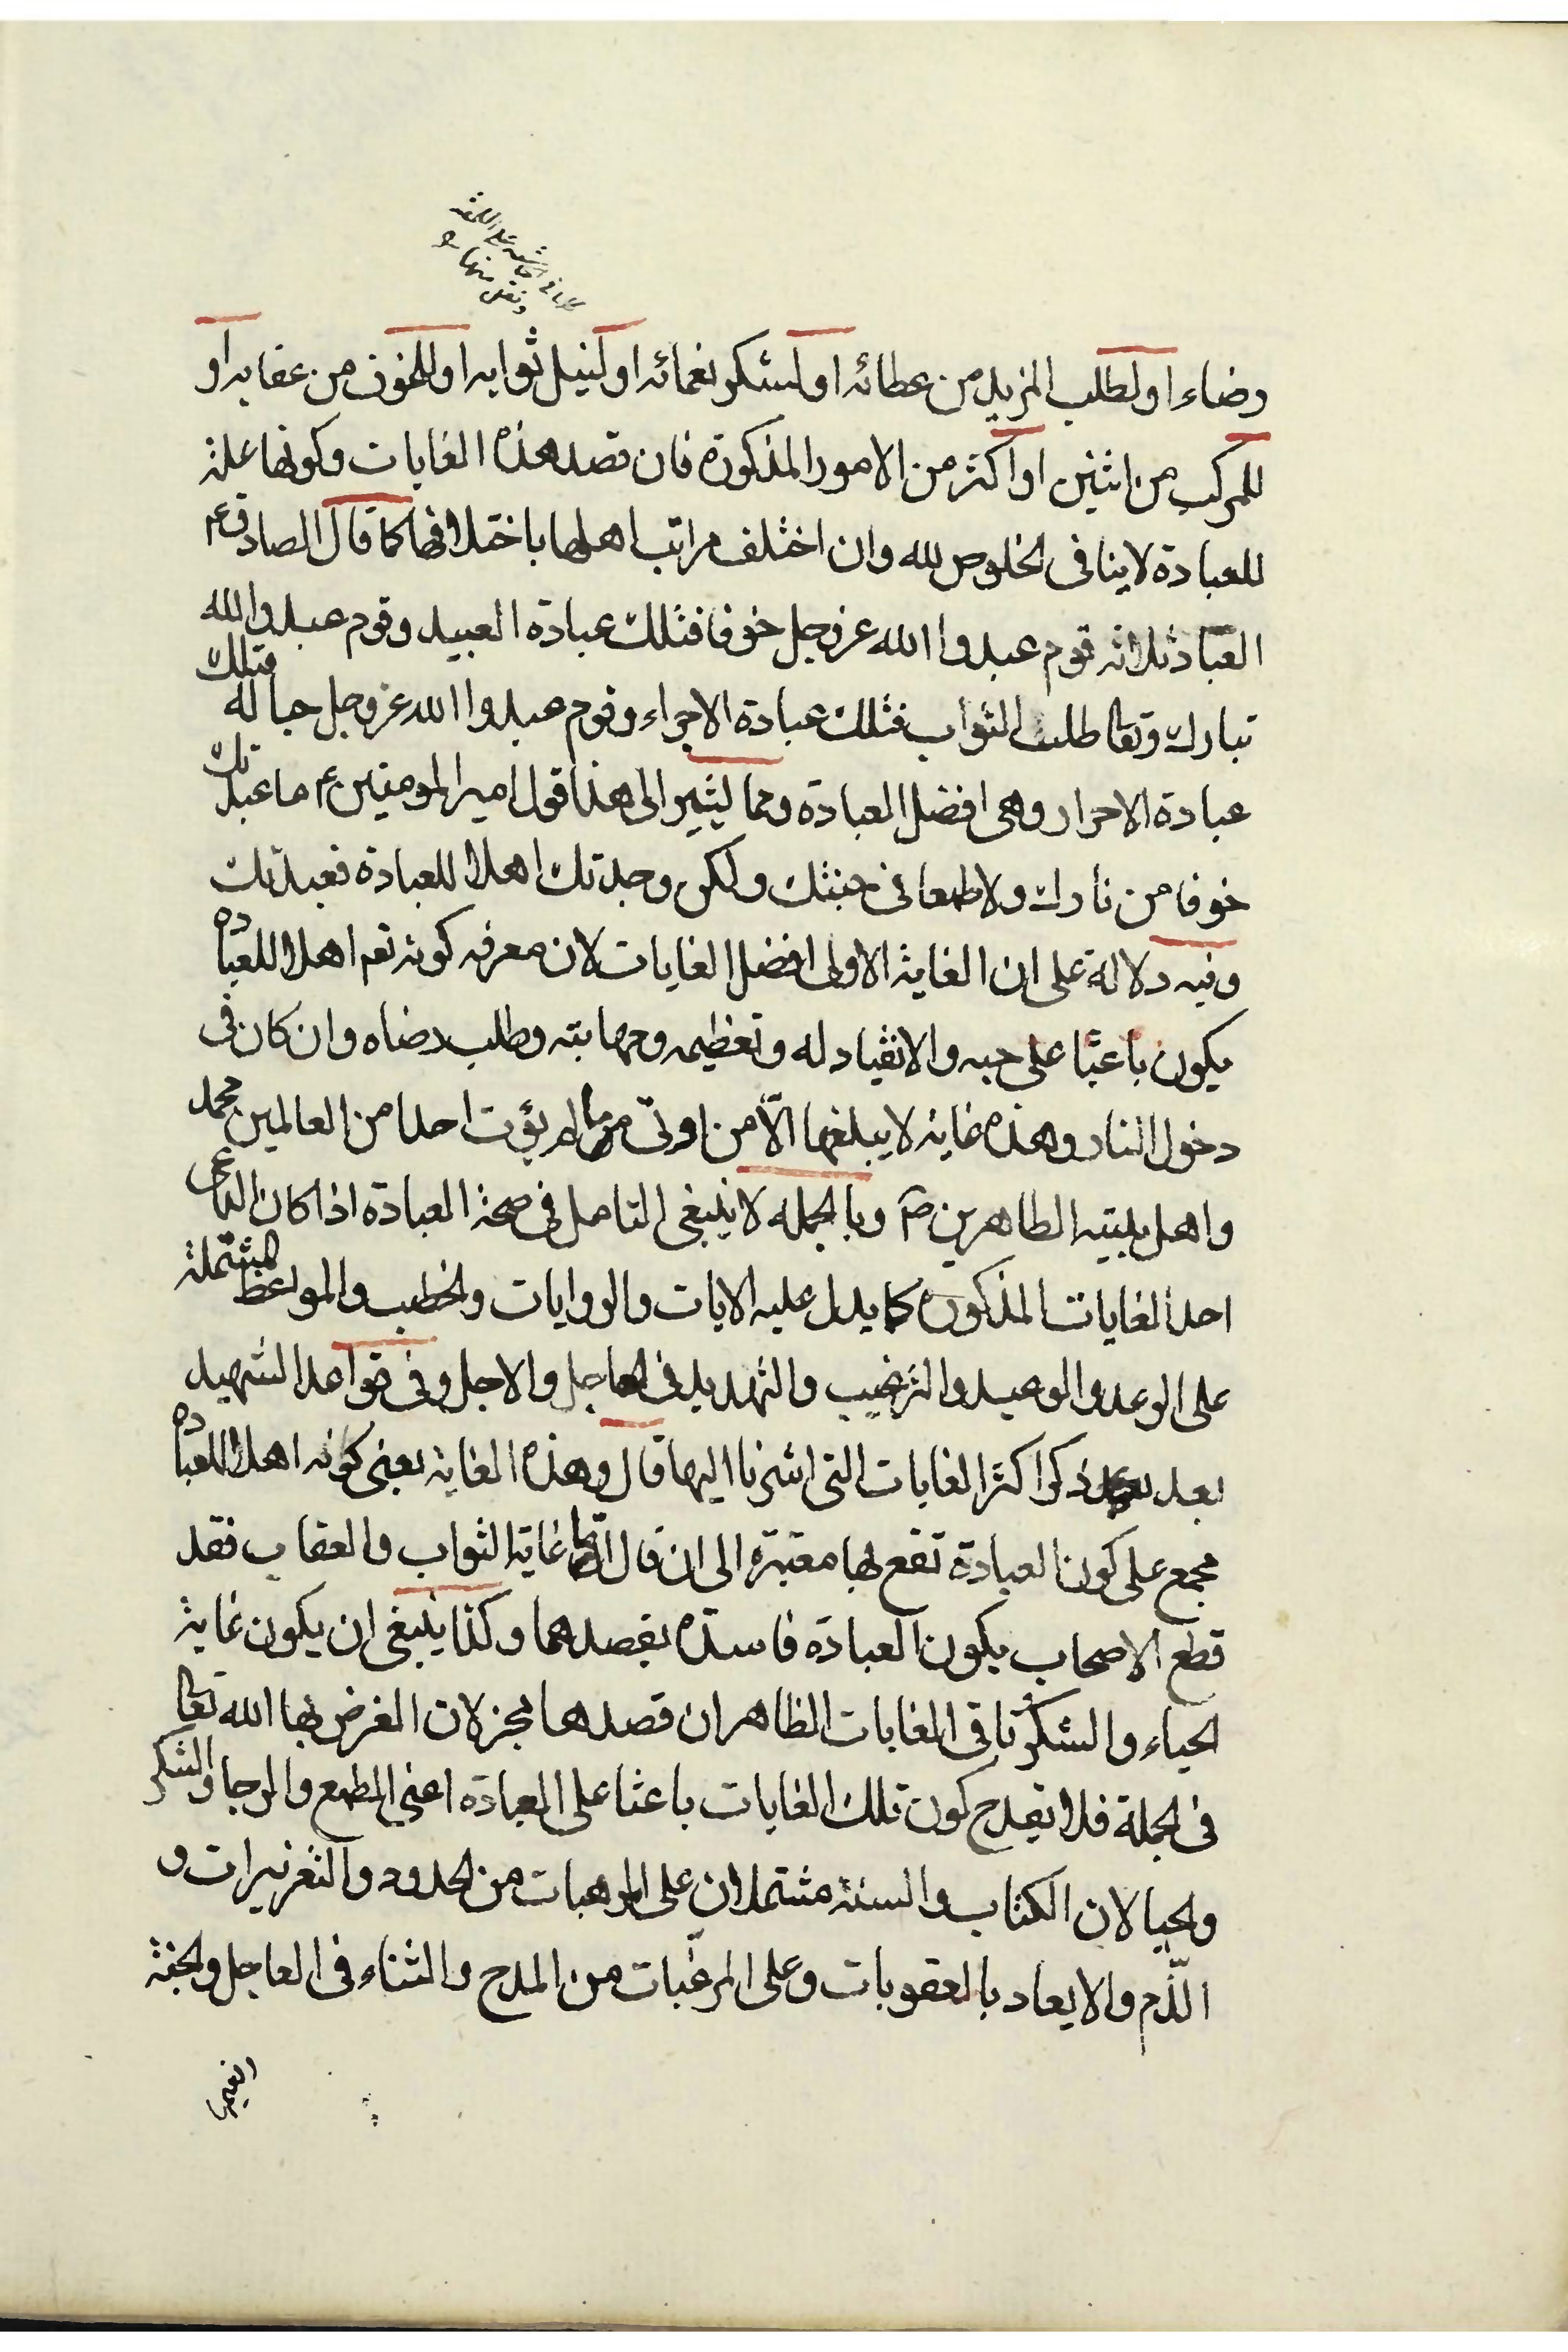 رضاء او لطلب المزيد من عطائه او لشكر نعمائه او لنيل ثوابه او للخوف من عقابه او
للمركب من اثنين او اكثر من الامور المذكورة فان قصد هذه الغايات وكونها علة
للعبادة لا ينافى الخلوص لله وان اختلف مراتب اهلها باختلافها كما قال الصادق ع
العباد ثلاثه قوم عبدوا الله عز وجل خوفا فتلك عبادة العبيد وقوم عبدوا الله
تبارك وتعا طلب الثواب فتلك عبادة الاجراء وقوم عبدوا الله عز وجل حبا له فتلك
عبادة الاحرار وهى افضل العبادة ومما يشير الى هذا قول امير المومنين ع ما عبدتك
خوفا من نارك ولا طمعا فى جنتك ولكن وجدتك اهلا للعبادة فعبدتك
وفيه دلالة على ان الغاية الاولى افضل الغايات لان معرفه كونه نعم اهلا للعباده
يكون باعثا على حبه والانقياد له وتعظيمه ومهابته وطلب رضاه وان كان فى
دخول النار وهذه غاية لا يبلغها الّا من اوتى ما لم يؤت احدا من العالمين محمد
واهل بيته الطاهرين ص وبالجمله لا ينبغى التامل فى صحة العبادة اذا كان الداعى
احد الغايات المذكوره كما يدل عليه الايات والروايات والخطب والمواعظ المشتملة
على الوعد والوعيد والترغيب والتهديد فى العاجل والاجل وفى قواعد الشهيد
بعد ذكر اكثر الغايات التى اشرنا اليها قال وهذه الغاية يعنى كونه اهلا للعباده
مجمع على كون العبادة تقع بها معتبرة الى ان قال اما غاية الثواب والعقاب فقد
قطع الاصحاب بكون العبادة فاسدة بقصدهما وكذا ينبغى ان يكون غاية
الحياء والشكر باقى الغايات الظاهر ان قصدها مجز لان الغرض بها الله تعا
فى الجملة فلا يقدح كون تلك الغايات باعثا على العبادة اعنى الطمع والرجا والشكر
والحيا لان الكتاب والسنة مشتملان على المرهبات من الحدود والتعزيرات و
الذّم والايعاد بالعقوبات وعلى المرغّبات من المدح والثناء فى العاجل والجنة